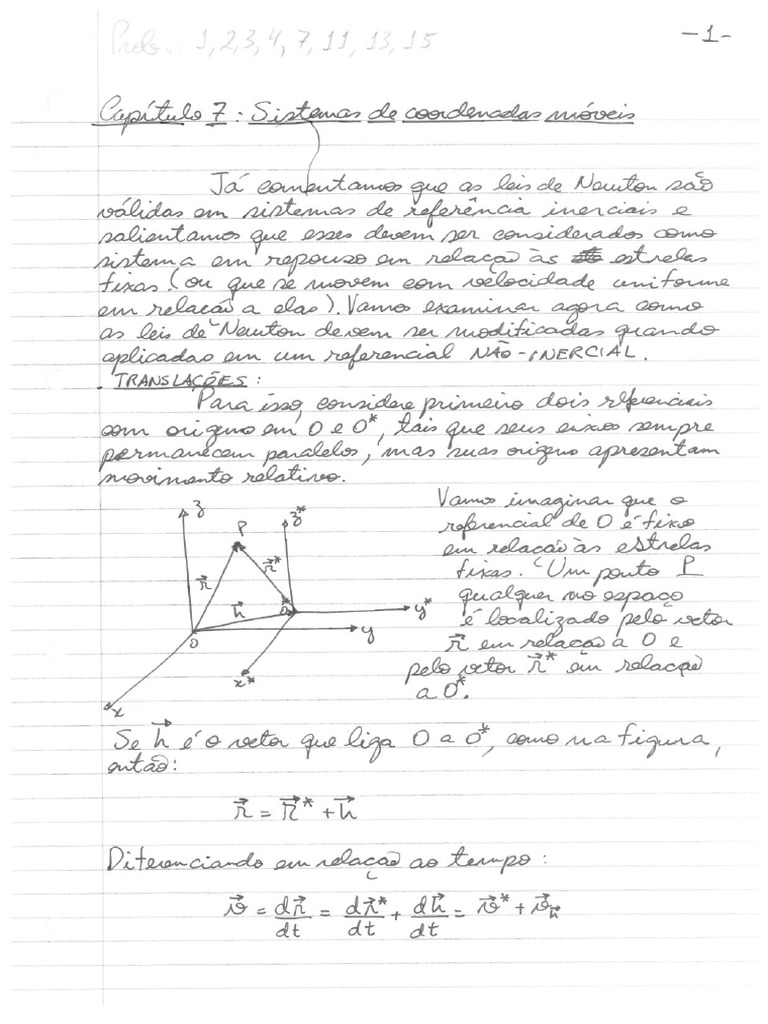 Prob... 1, 2, 3, 4, 7, 11, 13, 15
-1-
Capítulo 7: Sistemas de coordenadas móveis
Já comentamos que as leis de Newton são
válidas em sistemas de referência inerciais e
salientamos que esses devem ser considerados como
sistema em repouso em relação às estrelas
fixas (ou que se movem com velocidade uniforme
em relação a elas). Vamos examinar agora como
as leis de Newton devem ser modificadas quando
aplicadas em um referencial NÃO-INERCIAL.
- TRANSLAÇÕES:
Para isso, considere primeiro dois referenciais
com origens em O e O*, tais que seus eixos sempre
permanecem paralelos, mas suas origens apresentam
movimento relativo.
Vamos imaginar que o
referencial de O é fixo
em relação às estrelas
fixas. Um ponto P
qualquer no espaço
é localizado pelo vetor
r⃗ em relação a O e
pelo vetor r⃗* em relação
a O*.
z
z*
P
r⃗
r⃗*
h⃗
O*
y*
O
y
x*
x
Se h⃗ é o vetor que liga O a O*, como na figura,
então:
r⃗ = r⃗* + h⃗
Diferenciando em relação ao tempo:
v⃗ = dr⃗/dt = dr⃗*/dt + dh⃗/dt = v⃗* + v⃗ₕ